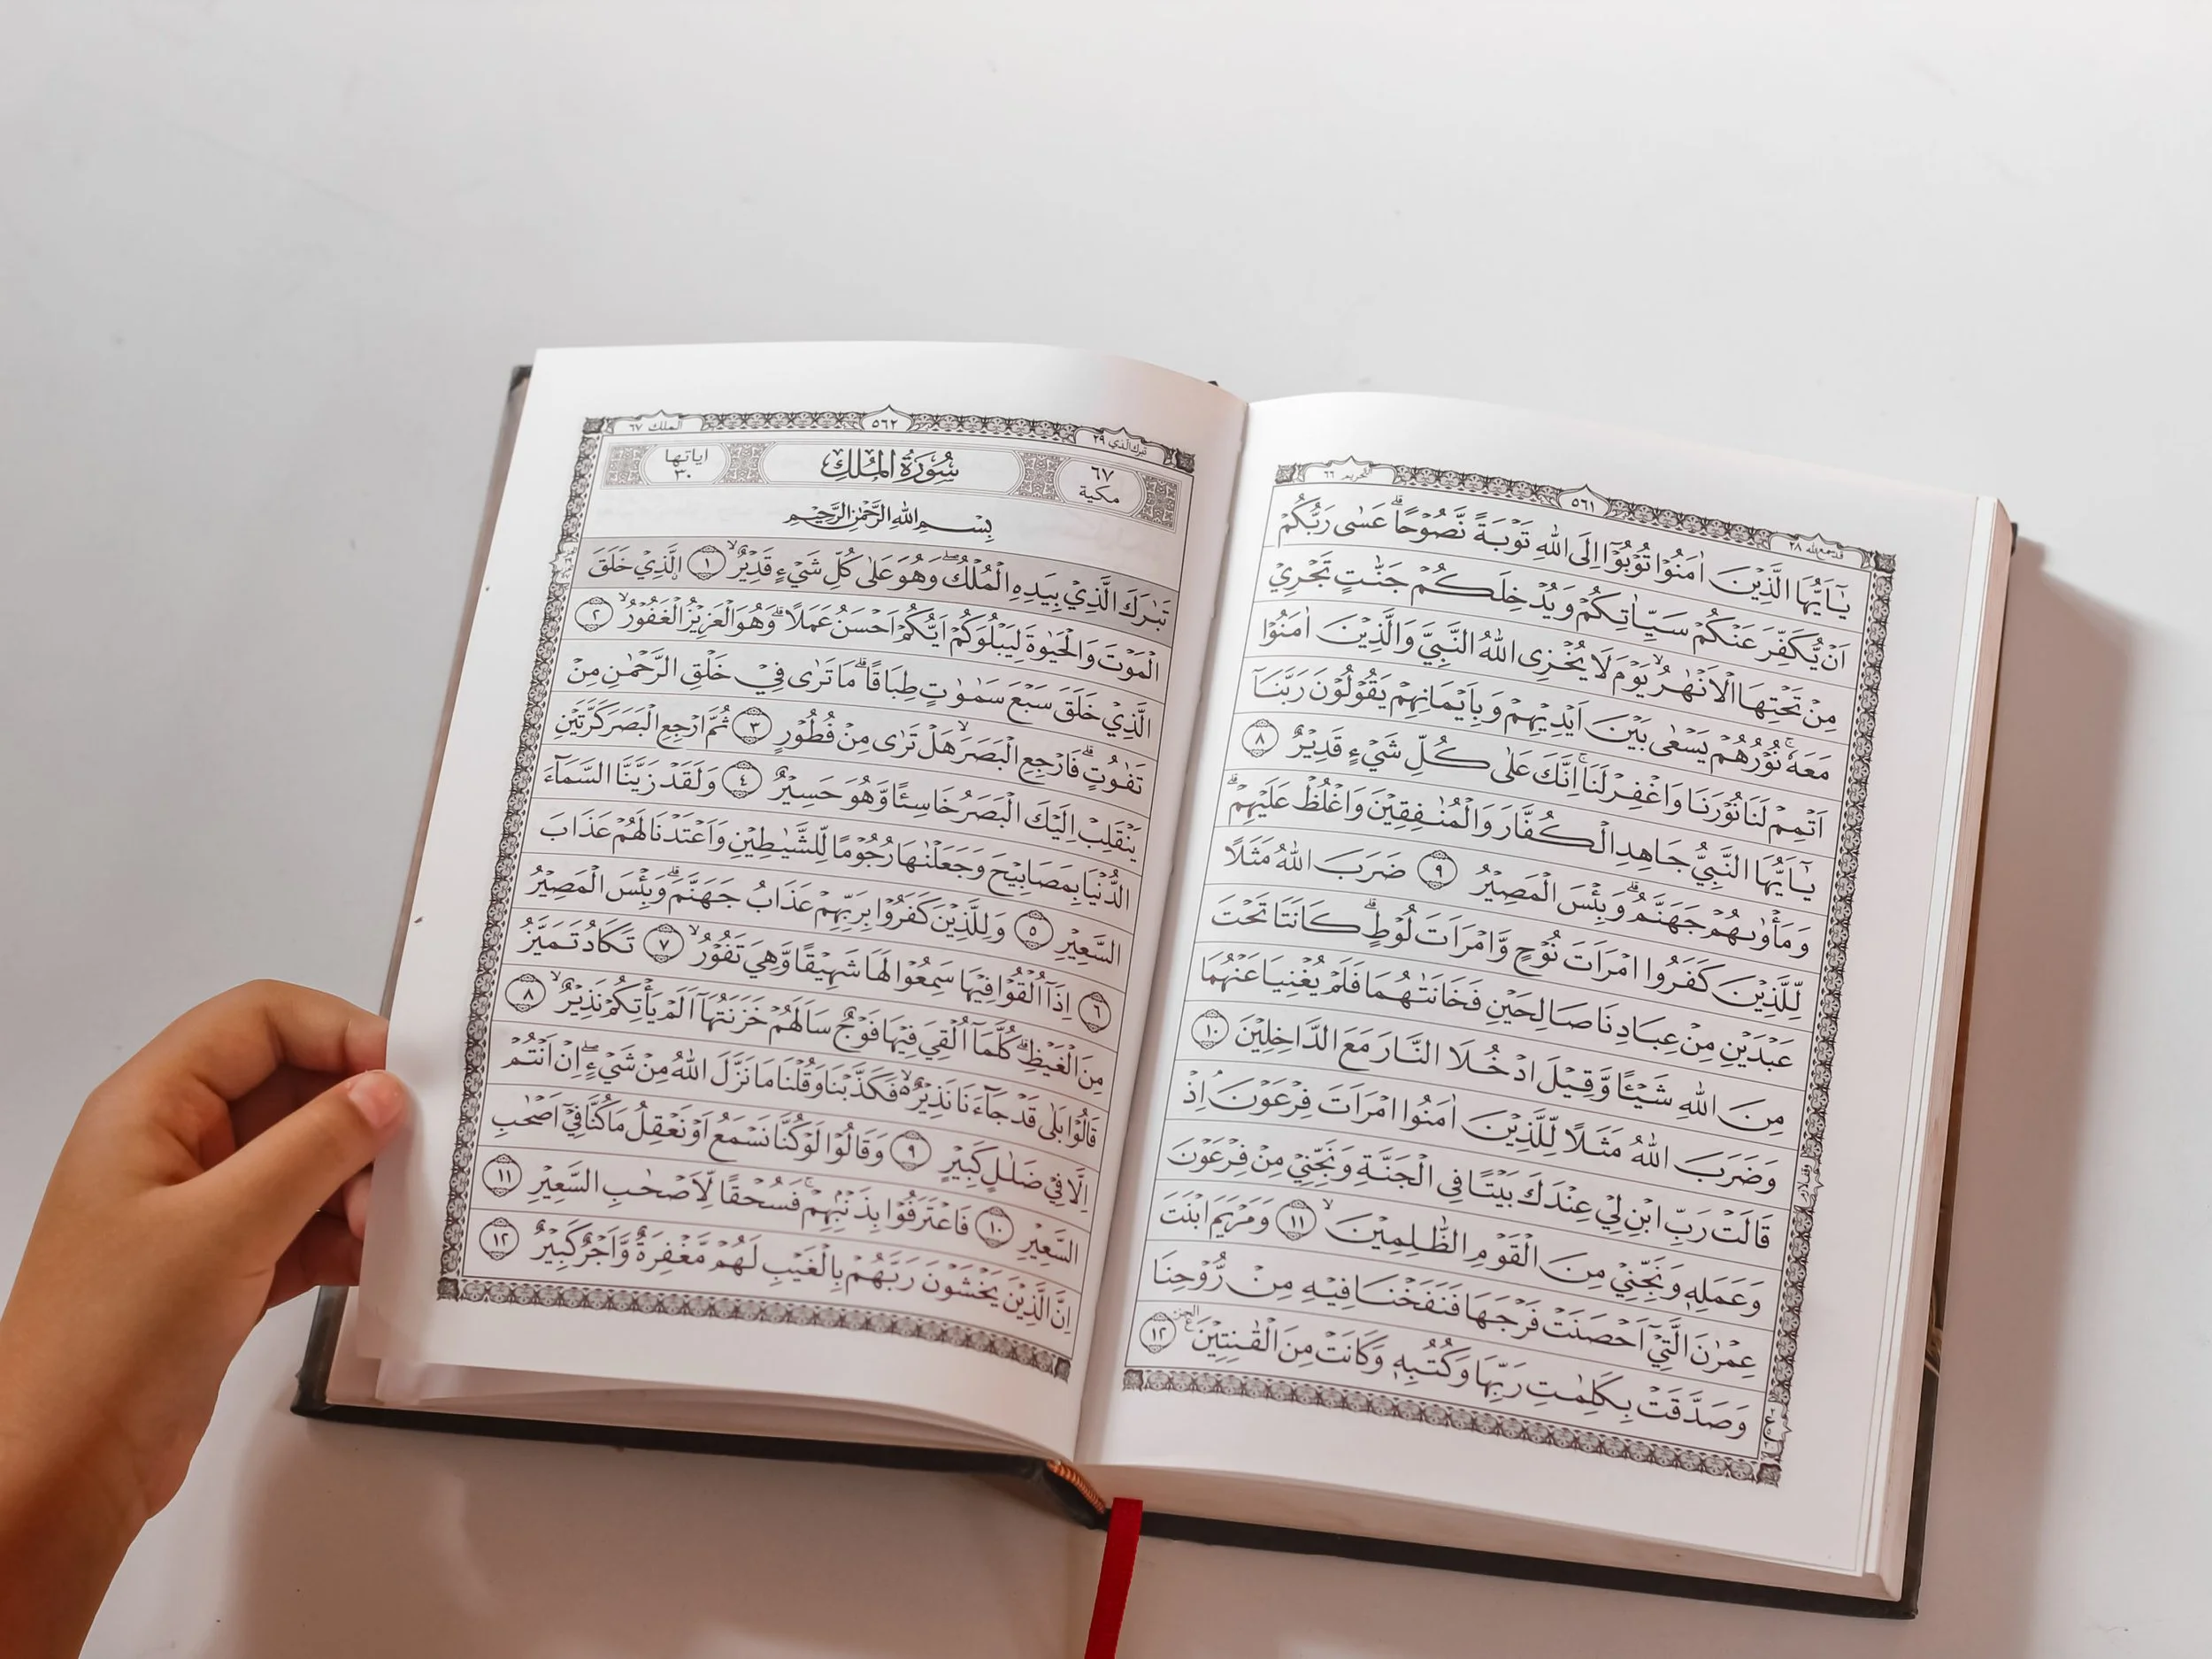 قد سمع الله ٢٨
٥٦١
التحريم ٦٦
يٰٓاَيُّهَا الَّذِيْنَ اٰمَنُوْا تُوْبُوْٓا اِلَى اللّٰهِ تَوْبَةً نَّصُوْحًاۗ عَسٰى رَبُّكُمْ
اَنْ يُّكَفِّرَ عَنْكُمْ سَيِّاٰتِكُمْ وَيُدْخِلَكُمْ جَنّٰتٍ تَجْرِيْ
مِنْ تَحْتِهَا الْاَنْهٰرُۙ يَوْمَ لَا يُخْزِى اللّٰهُ النَّبِيَّ وَالَّذِيْنَ اٰمَنُوْا
مَعَهٗۚ نُوْرُهُمْ يَسْعٰى بَيْنَ اَيْدِيْهِمْ وَبِاَيْمَانِهِمْ يَقُوْلُوْنَ رَبَّنَآ
اَتْمِمْ لَنَا نُوْرَنَا وَاغْفِرْ لَنَاۚ اِنَّكَ عَلٰى كُلِّ شَيْءٍ قَدِيْرٌ ٨
يٰٓاَيُّهَا النَّبِيُّ جَاهِدِ الْكُفَّارَ وَالْمُنٰفِقِيْنَ وَاغْلُظْ عَلَيْهِمْۗ
وَمَأْوٰىهُمْ جَهَنَّمُۗ وَبِئْسَ الْمَصِيْرُ ٩ ضَرَبَ اللّٰهُ مَثَلًا
لِّلَّذِيْنَ كَفَرُوا امْرَاَتَ نُوْحٍ وَّامْرَاَتَ لُوْطٍۗ كَانَتَا تَحْتَ
عَبْدَيْنِ مِنْ عِبَادِنَا صَالِحَيْنِ فَخَانَتٰهُمَا فَلَمْ يُغْنِيَا عَنْهُمَا
مِنَ اللّٰهِ شَيْـًٔا وَّقِيْلَ ادْخُلَا النَّارَ مَعَ الدَّاخِلِيْنَ ١٠
وَضَرَبَ اللّٰهُ مَثَلًا لِّلَّذِيْنَ اٰمَنُوا امْرَاَتَ فِرْعَوْنَۘ اِذْ
قَالَتْ رَبِّ ابْنِ لِيْ عِنْدَكَ بَيْتًا فِى الْجَنَّةِ وَنَجِّنِيْ مِنْ فِرْعَوْنَ
وَعَمَلِهٖ وَنَجِّنِيْ مِنَ الْقَوْمِ الظّٰلِمِيْنَۙ ١١ وَمَرْيَمَ ابْنَتَ
عِمْرٰنَ الَّتِيْٓ اَحْصَنَتْ فَرْجَهَا فَنَفَخْنَا فِيْهِ مِنْ رُّوْحِنَا
وَصَدَّقَتْ بِكَلِمٰتِ رَبِّهَا وَكُتُبِهٖ وَكَانَتْ مِنَ الْقٰنِتِيْنَ ١٢
تبرك الذي ٢٩
٥٦٢
الملك ٦٧
٦٧
مكية
سُوْرَةُ الْمُلْكِ
اياتها
٣٠
بِسْمِ اللّٰهِ الرَّحْمٰنِ الرَّحِيْمِ
تَبٰرَكَ الَّذِيْ بِيَدِهِ الْمُلْكُۖ وَهُوَ عَلٰى كُلِّ شَيْءٍ قَدِيْرٌۙ ١ اۨلَّذِيْ خَلَقَ
الْمَوْتَ وَالْحَيٰوةَ لِيَبْلُوَكُمْ اَيُّكُمْ اَحْسَنُ عَمَلًاۗ وَهُوَ الْعَزِيْزُ الْغَفُوْرُۙ ٢
الَّذِيْ خَلَقَ سَبْعَ سَمٰوٰتٍ طِبَاقًاۗ مَا تَرٰى فِيْ خَلْقِ الرَّحْمٰنِ مِنْ
تَفٰوُتٍۗ فَارْجِعِ الْبَصَرَۙ هَلْ تَرٰى مِنْ فُطُوْرٍ ٣ ثُمَّ ارْجِعِ الْبَصَرَ كَرَّتَيْنِ
يَنْقَلِبْ اِلَيْكَ الْبَصَرُ خَاسِئًا وَّهُوَ حَسِيْرٌ ٤ وَلَقَدْ زَيَّنَّا السَّمَاۤءَ
الدُّنْيَا بِمَصَابِيْحَ وَجَعَلْنٰهَا رُجُوْمًا لِّلشَّيٰطِيْنِ وَاَعْتَدْنَا لَهُمْ عَذَابَ
السَّعِيْرِ ٥ وَلِلَّذِيْنَ كَفَرُوْا بِرَبِّهِمْ عَذَابُ جَهَنَّمَۗ وَبِئْسَ الْمَصِيْرُ
٦ اِذَآ اُلْقُوْا فِيْهَا سَمِعُوْا لَهَا شَهِيْقًا وَّهِيَ تَفُوْرُۙ ٧ تَكَادُ تَمَيَّزُ
مِنَ الْغَيْظِۗ كُلَّمَآ اُلْقِيَ فِيْهَا فَوْجٌ سَاَلَهُمْ خَزَنَتُهَآ اَلَمْ يَأْتِكُمْ نَذِيْرٌۙ ٨
قَالُوْا بَلٰى قَدْ جَاۤءَنَا نَذِيْرٌۙ ەۙ فَكَذَّبْنَا وَقُلْنَا مَا نَزَّلَ اللّٰهُ مِنْ شَيْءٍۖ اِنْ اَنْتُمْ
اِلَّا فِيْ ضَلٰلٍ كَبِيْرٍ ٩ وَقَالُوْا لَوْ كُنَّا نَسْمَعُ اَوْ نَعْقِلُ مَا كُنَّا فِيْٓ اَصْحٰبِ
السَّعِيْرِ ١٠ فَاعْتَرَفُوْا بِذَنْۢبِهِمْۚ فَسُحْقًا لِّاَصْحٰبِ السَّعِيْرِ ١١
اِنَّ الَّذِيْنَ يَخْشَوْنَ رَبَّهُمْ بِالْغَيْبِ لَهُمْ مَّغْفِرَةٌ وَّاَجْرٌ كَبِيْرٌ ١٢